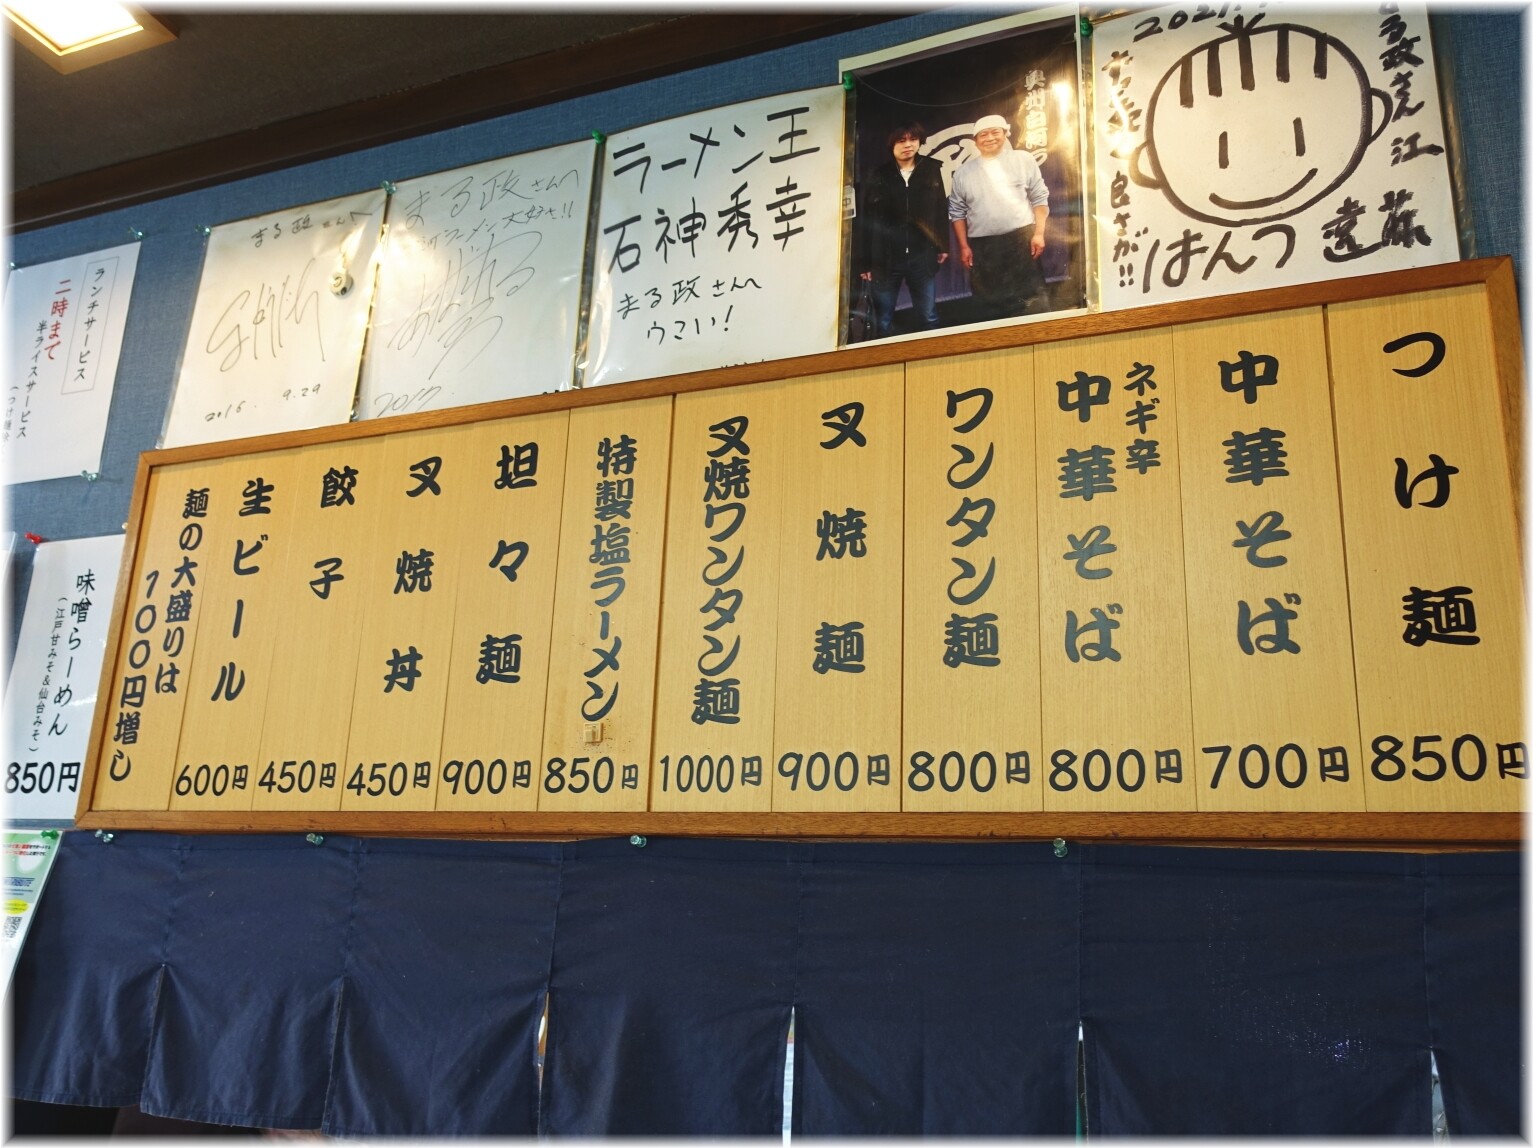 まる政さん江
2021.
良さが!!
はんつ遠藤
奥州白河
ラーメン王
石神秀幸
まる政さんへ
ウこい!
まる政さんへ
ラーメン大好き!!
2017
まる政さんへ
2016. 9.29
ランチサービス
二時まで
半ライスサービス
つけ麺 850円
中華そば 700円
ネギ辛
中華そば 800円
ワンタン麺 800円
叉焼麺 900円
叉焼ワンタン麺 1000円
特製塩ラーメン 850円
坦々麺 900円
叉焼丼 450円
餃子 450円
生ビール 600円
麺の大盛りは
100円増し
味噌らーめん
(江戸甘みそ&仙台みそ)
850円